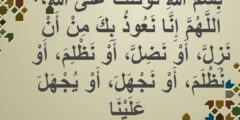 بِسْمِ اللَّهِ تَوَكَّلْتُ عَلَى اللَّهِ،
اللَّهُمَّ إِنَّا نَعُوذُ بِكَ مِنْ أَنْ
نَزِلَّ، أَوْ نَضِلَّ، أَوْ نَظْلِمَ، أَوْ
نُظْلَمَ، أَوْ نَجْهَلَ، أَوْ يُجْهَلَ
عَلَيْنَا